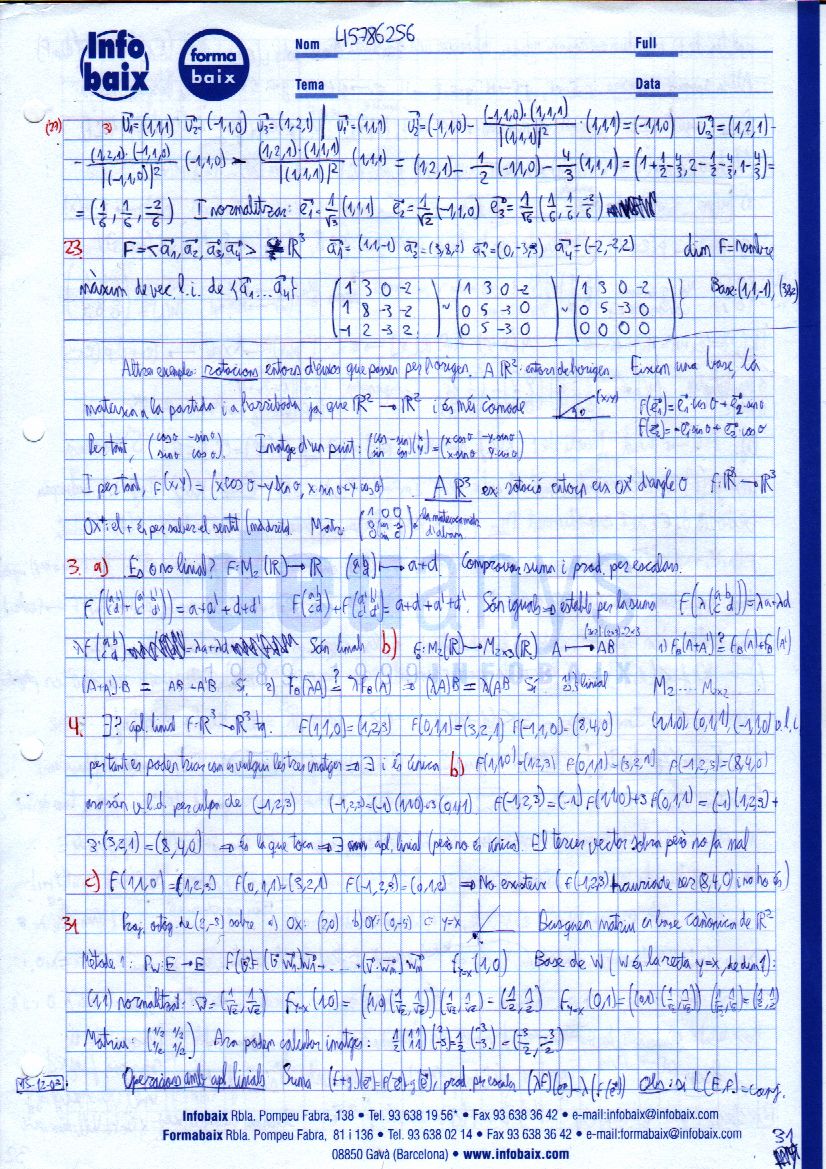 Infò baix
forma baix
Nom 45786256
Full
Tema
Data
(29) 3) v₁=(1,1,1) v₂=(-1,1,0) v₃=(1,2,1) | v₁=(1,1,1) v₂=(-1,1,0) - (-1,1,0)·(1,1,1)/|(1,1,1)|² ·(1,1,1)=(-1,1,0) v₃=(1,2,1)-
- (1,2,1)·(-1,1,0)/|(-1,1,0)|² (-1,1,0) - (1,2,1)·(1,1,1)/|(1,1,1)|² (1,1,1) = (1,2,1) - 1/2 (-1,1,0) - 4/3 (1,1,1) = (1+1/2-4/3, 2-1/2-4/3, 1-4/3)=
= (1/6, 1/6, -2/6) I normalitzar: e₁=1/√3 (1,1,1) e₂=1/√2 (-1,1,0) e₃=1/√6 (1/6, 1/6, -2/6)
23. F=<a₁,a₂,a₃,a₄> ℝ³ a₁=(1,1,-1) a₂=(3,8,2) a₃=(0,-3,-3) a₄=(-2,-2,2) dim F=nombre
màxim de vec. l.i. de {a₁...a₄} (1 3 0 -2 / 1 8 -3 -2 / -1 2 -3 2) ~ (1 3 0 -2 / 0 5 -3 0 / 0 5 -3 0) ~ (1 3 0 -2 / 0 5 -3 0 / 0 0 0 0) } Base: (1,1,-1), (3,8,2)
Altres exemples: rotacions entorn d'eixos que passen per l'origen. A ℝ²: entorn de l'origen. Fixem una base, la
mateixa a la partida i a l'arribada ja que ℝ² → ℝ² i és més còmode (x,y) f(e₁)=e₁ cos θ + e₂ sin θ
f(e₂)=-e₁ sin θ + e₂ cos θ
Per tant, (cos θ -sin θ / sin θ cos θ). Imatge d'un punt: (cos -sin / sin cos)(x / y)=(x cos θ -y sin θ / x sin θ y cos θ)
I per tant, f(x,y)=(x cos θ - y sen θ, x sin θ + y cos θ). A ℝ³ ex: rotació entorn eix OX⁺ d'angle θ f: ℝ³ → ℝ³
OX⁺: el + és per saber el sentit Matriu: (1 0 0 / 0 cos -sin / 0 sin cos) la mateixa
d'abans.
3. a) És o no linial? F: M₂(ℝ) → ℝ (a b / c d) ↦ a+d. Comprovar suma i prod. per escalars.
F((a b / c d)+(a' b' / c' d'))=a+a'+d+d' F(a b / c d)+F(a' b' / c' d')=a+d+a'+d'. Són iguals ⇒ estable per la suma F(λ(a b / c d))=λa+λd
λF(a b / c d) =λa+λd Són linials b) f_B: M₂(ℝ) → M₂ₓ₃(ℝ) A ↦ AB 1) F_B(A+A') ?= F_B(A)+F_B(A')
(A+A')·B = AB+A'B Sí, 2) F_B(λA) ?= λF_B(A) ⇒ (λA)B = λ(AB) Sí. linial M₂....Mₓ₂
4. ∃? apl. linial f: ℝ³ → ℝ³ tq. F(1,1,0)=(1,2,3) F(0,1,1)=(3,2,1) F(-1,1,0)=(8,4,0) (1,1,0) (0,1,1) (-1,1,0) l.i.
per tant es poden triar com vulguin les tres imatges ⇒ ∃ i és única b) F(1,1,0)=(1,2,3) F(0,1,1)=(3,2,1) F(-1,2,3)=(8,4,0)
ara són v.l.d. per culpa de (-1,2,3) (-1,2,3)=(-1)(1,1,0)+3(0,1,1) F(-1,2,3)=(-1)F(1,1,0)+3F(0,1,1)=(-1)(1,2,3)+
3·(3,2,1)=(8,4,0) ⇒ és la que toca ⇒ ∃ apl. linial (però no és única). El tercer vector sobra però no fa mal
c) F(1,1,0)=(1,2,3) F(0,1,1)=(3,2,1) F(-1,2,3)=(0,1,2) ⇒ No existeix (f(-1,2,3) hauria de ser (8,4,0) i no ho és)
31 Proj. ortog. de (2,-5) sobre a) OX: (2,0) b) OY: (0,-5) c) y=x Busquem matriu en base canònica de ℝ²
Mètode 1: P_W: E → E F(v)=(v·w₁)w₁+...+(v·wₘ)wₘ f_y=x(1,0) Base de W (W és la recta y=x, de dim 1):
(1,1) normalitzat: w=(1/√2, 1/√2) F_y=x(1,0)=((1,0)(1/√2, 1/√2))(1/√2, 1/√2)=(1/2, 1/2) F_y=x(0,1)=((0,1)·(1/√2, 1/√2))(1/√2, 1/√2)=(1/2, 1/2)
Matriu: (1/2 1/2 / 1/2 1/2) Ara podem calcular imatges: 1/2 (1 1 / 1 1)(2 / -5)=1/2 (-3 / -3)=(-3/2, -3/2)
15-12-03 Operacions amb apl. linials Suma (f+g)(e)=f(e)+g(e), prod. per escalar (λf)(e)=λ(f(e)) Obs: si L(E,F)=conj.
Infobaix Rbla. Pompeu Fabra, 138 • Tel. 93 638 19 56* • Fax 93 638 36 42 • e-mail:infobaix@infobaix.com
Formabaix Rbla. Pompeu Fabra, 81 i 136 • Tel. 93 638 02 14 • Fax 93 638 36 42 • e-mail:formabaix@infobaix.com
08850 Gavà (Barcelona) • www.infobaix.com
31